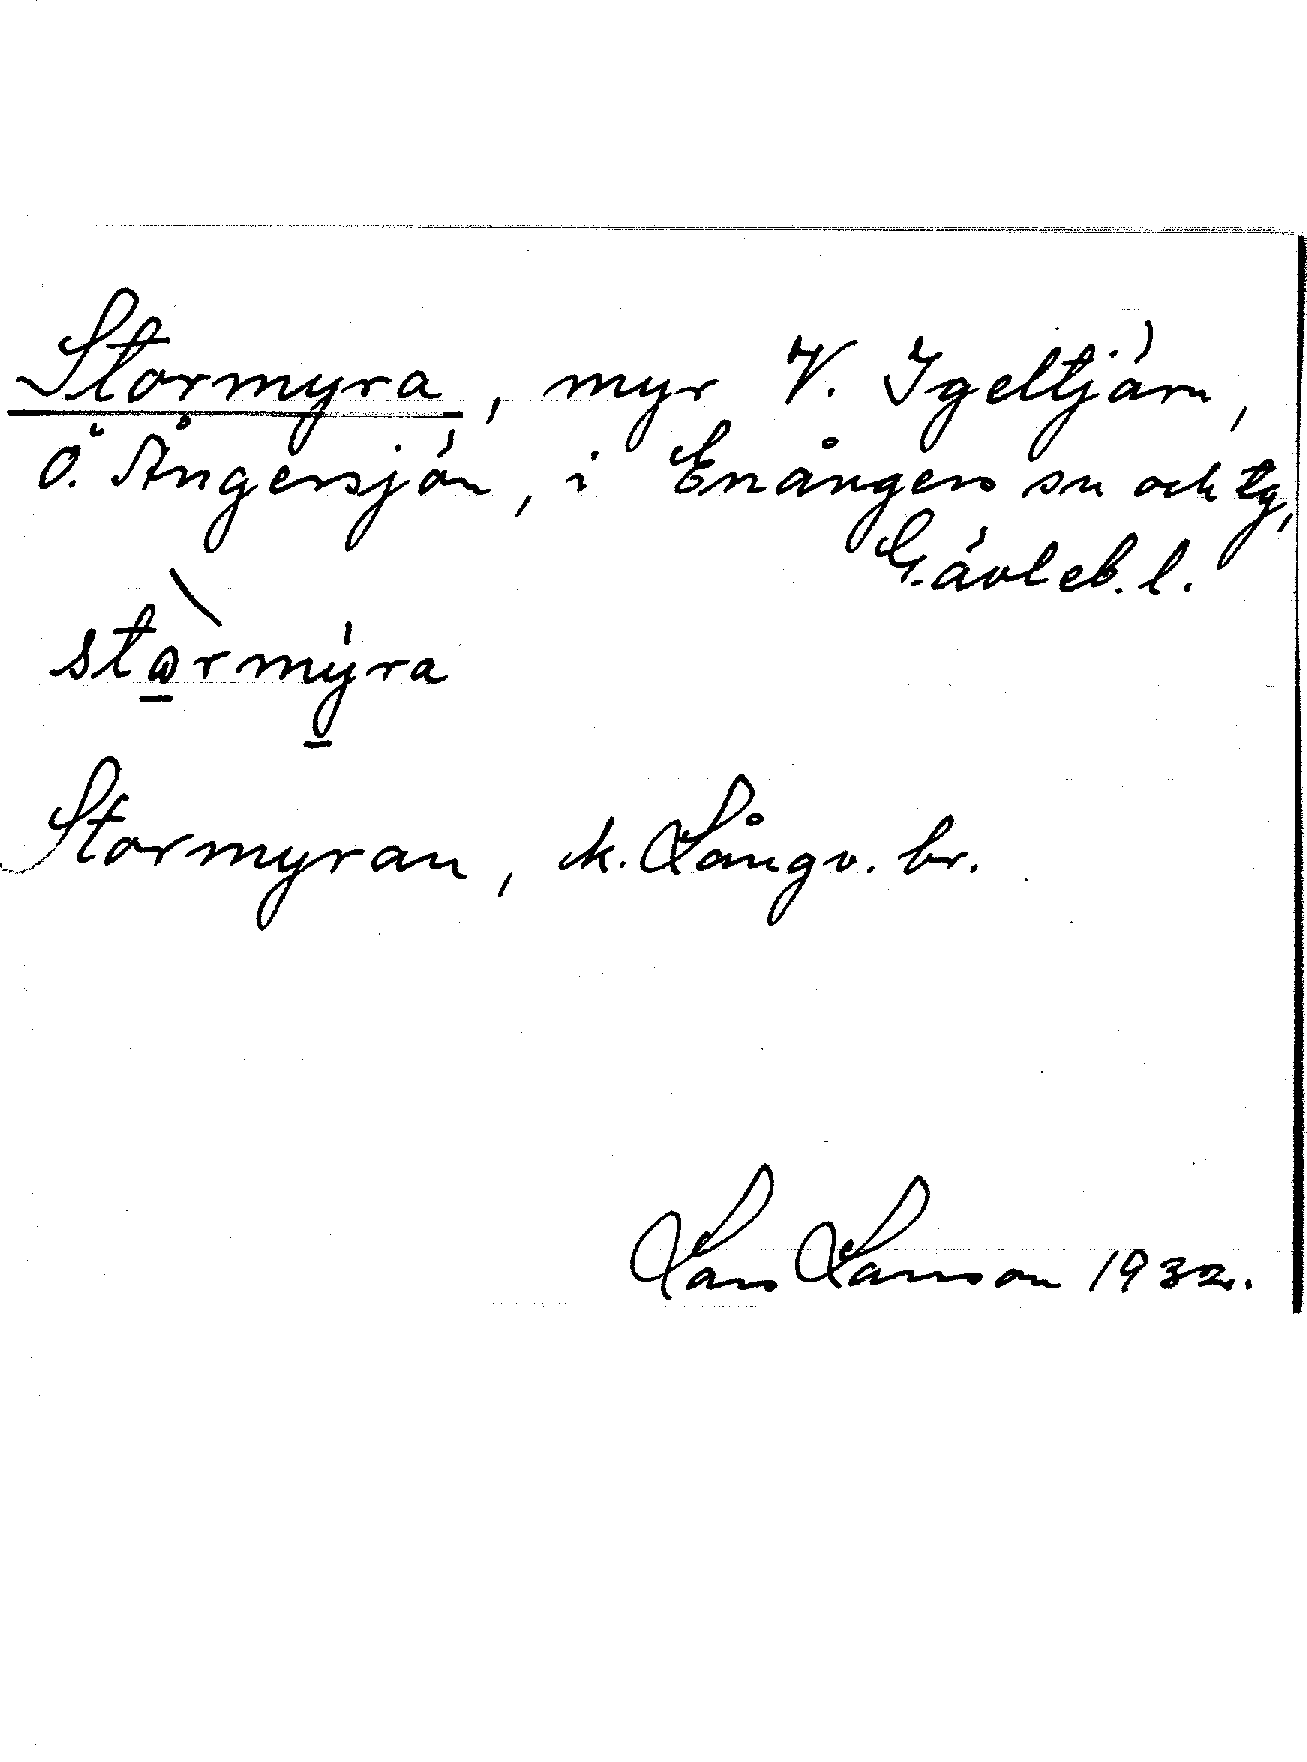 Stormyra, myr V. Igeltjärn,
Ö. Ångersjön, i Enångers sn och tg,
Gävleb. l.
stòrmýra
Stormyran, k. Långv. br.
Lars Larsson 1932.